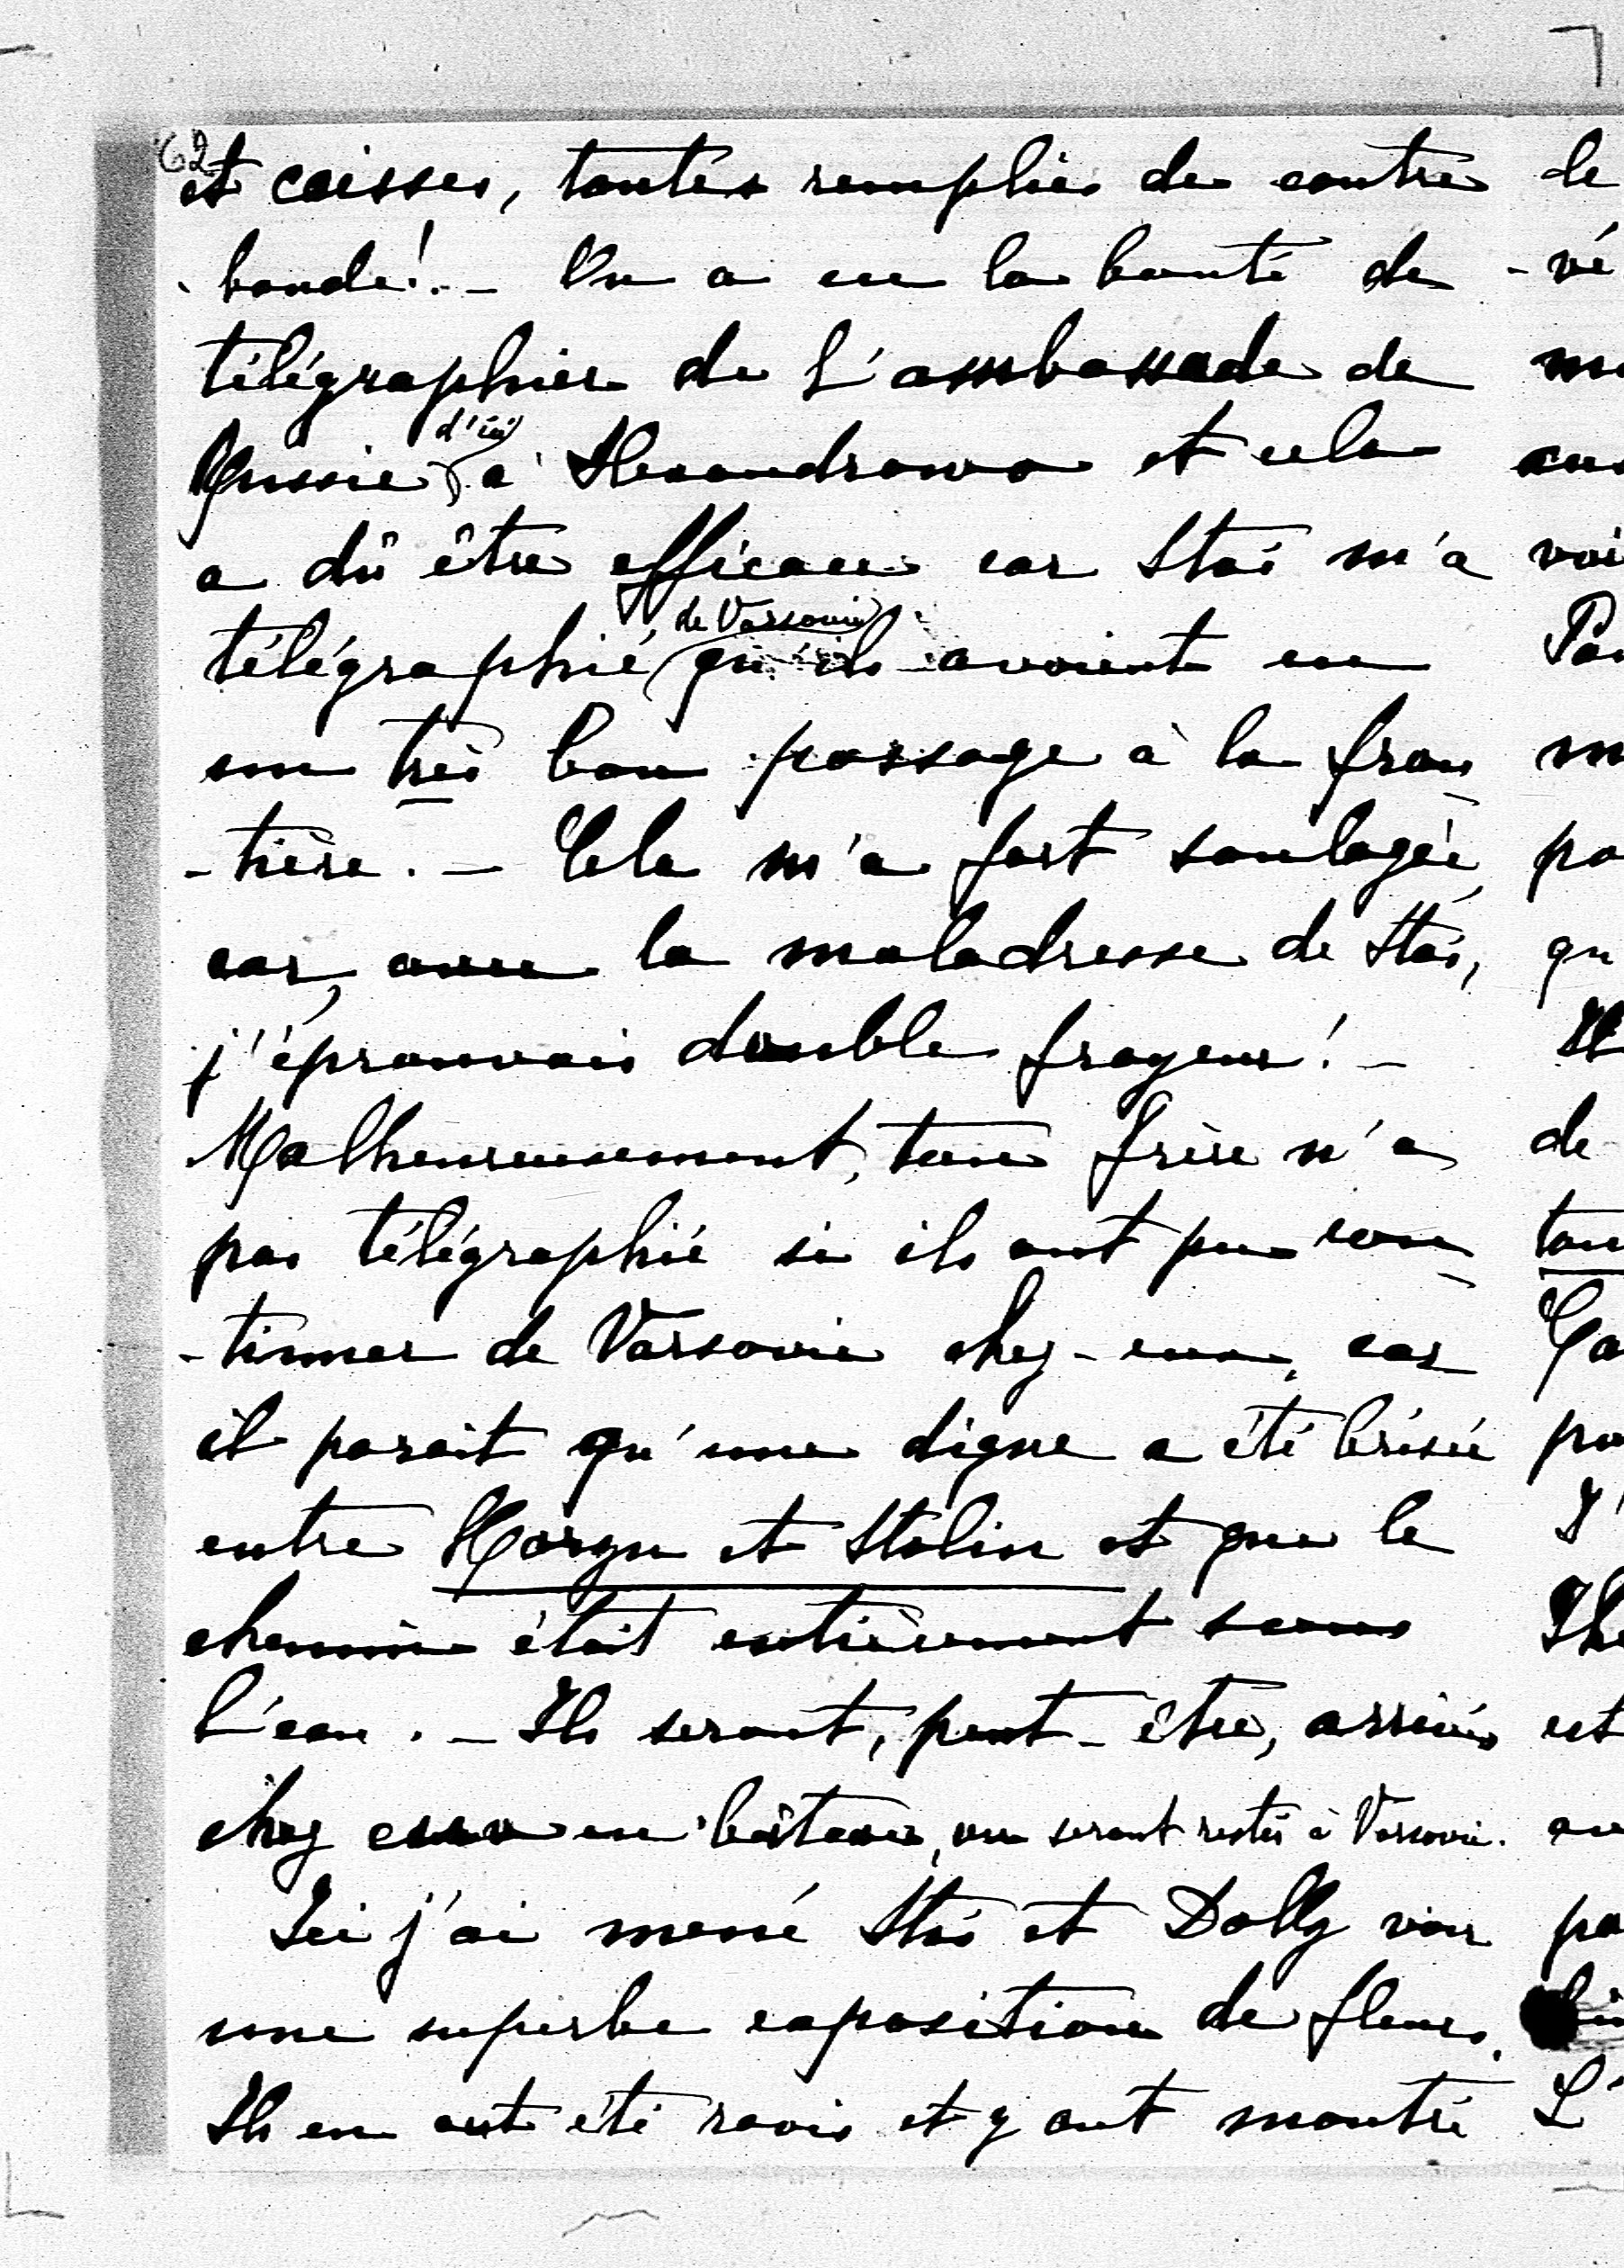 62
et caisses, toutes remplies de contre
-bande!.- On a eu la bonté de
télégraphier de l'ambassade de
Russie d'ici à Alexandrowo et cela
a dû être efficace car Stás m'a
télégraphié de Varsovie qu'ils avaient eu
un très bon passage à la fron
-tière. - Cela m'a fort soulagée,
car, avec la maladresse de Stás,
j'éprouvais double frayeur! -
Malheureusement, ton frère n'a
pas télégraphié si ils ont pu con
-tinuer de Varsovie chez-eux, car
il parait qu'une digue a été brisée
entre Horyn et Stolin et que le
chemin était entièrement sous
l'eau. - Ils seront, peut-être, arrivés
chez eux en bâteau, ou seront restés à Varsovie.
Ici j'ai mené Stás et Dolly voir
une superbe exposition de fleurs.
Ils en ont été ravis et y ont montré
de
-vé
voi
po
qu
de